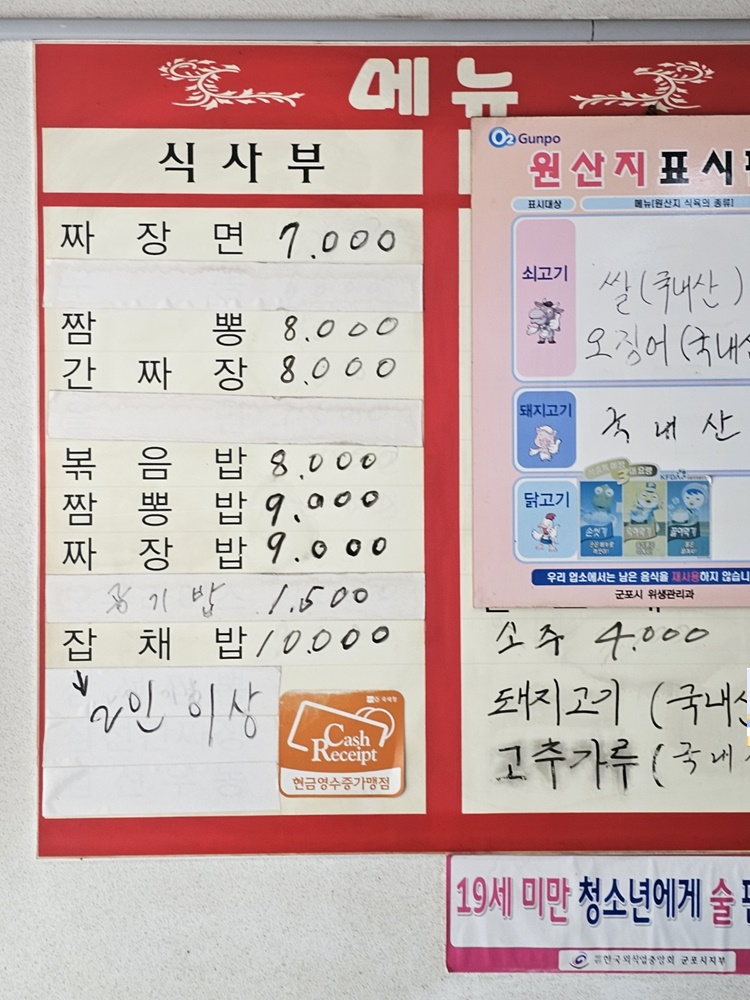 메뉴
식사부
짜장면 7.000
짬뽕 8.000
간짜장 8.000
볶음밥 8.000
짬뽕밥 9.000
짜장밥 9.000
공기밥 1.500
잡채밥 10.000
2인 이상
Cash Receipt
현금영수증가맹점
O2 Gunpo
원산지 표시
표시대상
메뉴[원산지 식육의 종류]
쇠고기
쌀 (국내산)
오징어 (국내산
돼지고기
국내산
닭고기
손씻기
익혀먹기
끓여먹기
우리 업소에서는 남은 음식을 재사용하지 않습니
군포시 위생관리과
소주 4.000
돼지고기 (국내산
고추가루 (국내
19세 미만 청소년에게 술
한국외식업중앙회 군포시지부